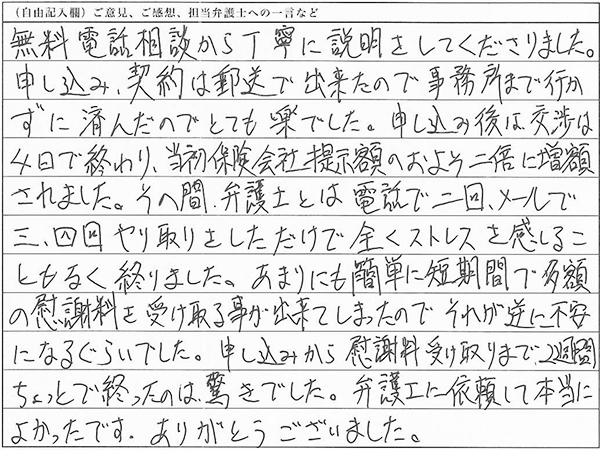 (自由記入欄)ご意見、ご感想、担当弁護士への一言など
無料電話相談から丁寧に説明をしてくださりました。
申し込み、契約は郵送で出来たので事務所まで行か
ずに済んだのでとても楽でした。申し込み後は、交渉は
4日で終わり、当初保険会社提示額のおよそ二倍に増額
されました。その間、弁護士とは電話で二回、メールで
三、四回やり取りをしただけで全くストレスを感じるこ
ともなく終りました。あまりにも簡単に短期間で多額
の慰謝料を受け取る事が出来てしまったのでそれが逆に不安
になるぐらいでした。申し込みから慰謝料受け取りまで、2週間
ちょっとで終ったのは、驚きでした。弁護士に依頼して本当に
よかったです。ありがとうございました。